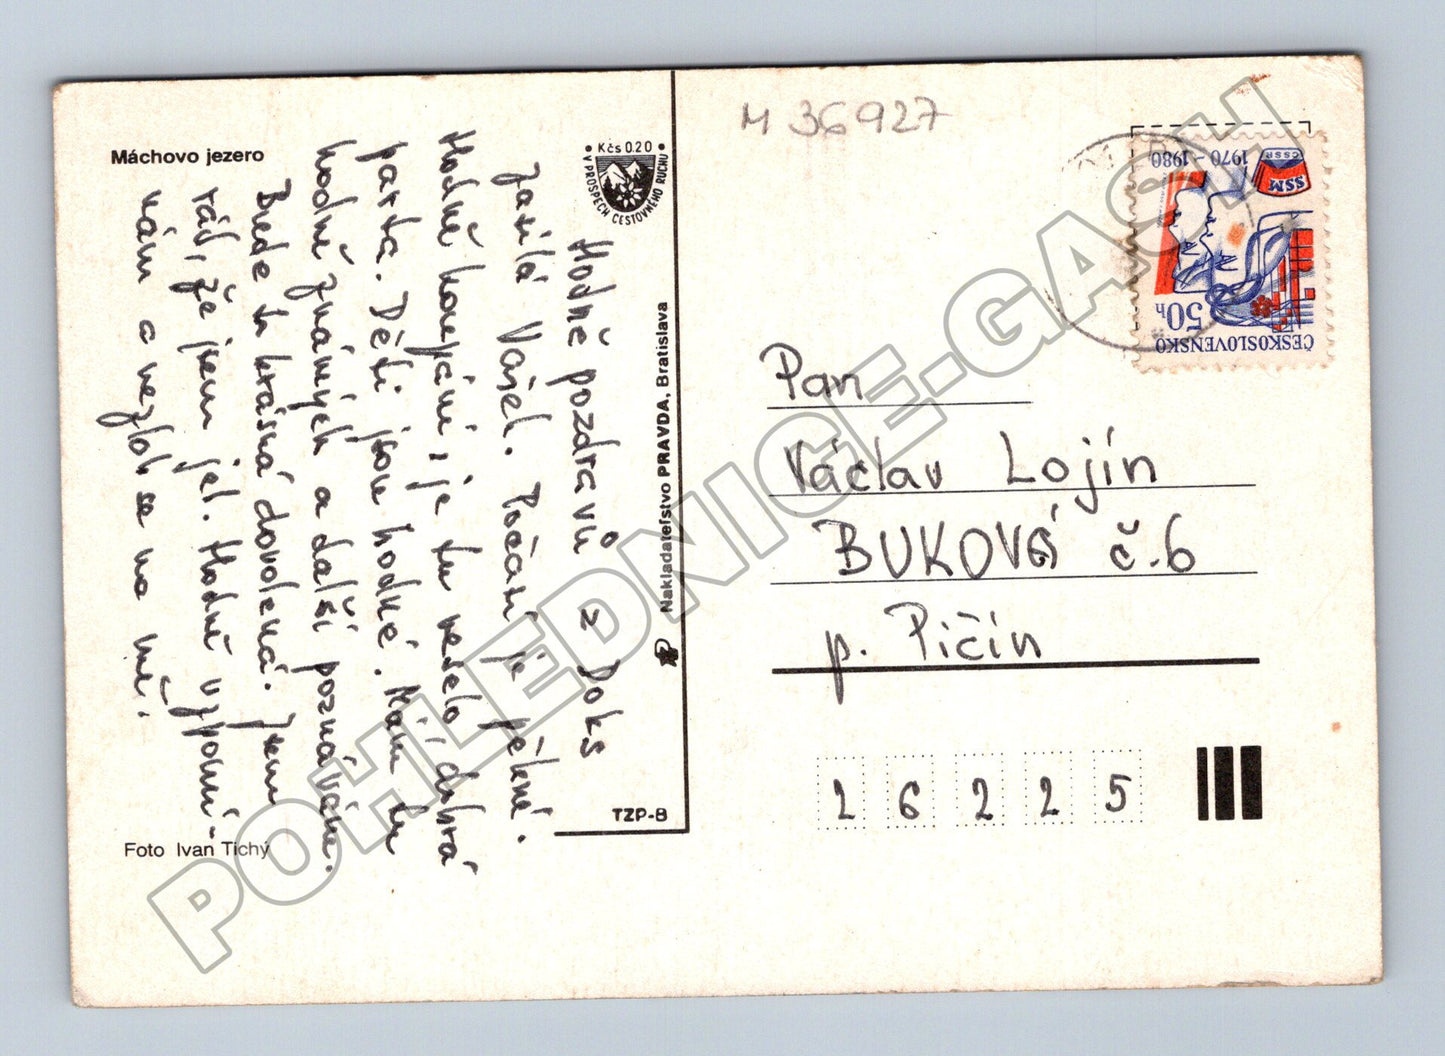 Máchovo jezero
Kčs 0.20
V PROSPĚCH CESTOVNÉHO RUCHU
Hodně pozdravů z Doks
zasílá Vašek. Počasí je pěkné.
Hodně koupání, je tu veselo, dobrá
parta. Děti jsou hodné. Mám tu
hodně známých a další poznávám.
Bude to krásná dovolená. Jsem
rád, že jsem jel. Hodně vzpomí-
nám a nezlob se na mě.
Foto Ivan Tichý
Nakladateľstvo PRAVDA, Bratislava
TZP-B
M 36927
ČESKOSLOVENSKO
50h
SSM
ČSSR
1970 - 1980
Pan
Václav Lojín
BUKOVÁ č.6
p. Pičín
26225
POHLEDNICE-GASH